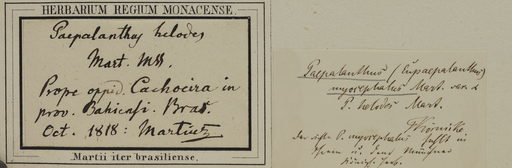 HERBARIUM REGIUM MONACENSE.
Paepalanthus helodes
Mart. Mss.
Prope oppid. Cachoeira in
prov. Bahiensi. Bras.
Oct. 1818: Martius
Martii iter brasiliense.
Paepalanthus (Eupaepalanthus)
myocephalus Mart. var α
P. helodes Mart.
FKörnicke
Der ächte P. myocephalus fehlt in
Ihrem u. dem Münchner
Königl. Herb.